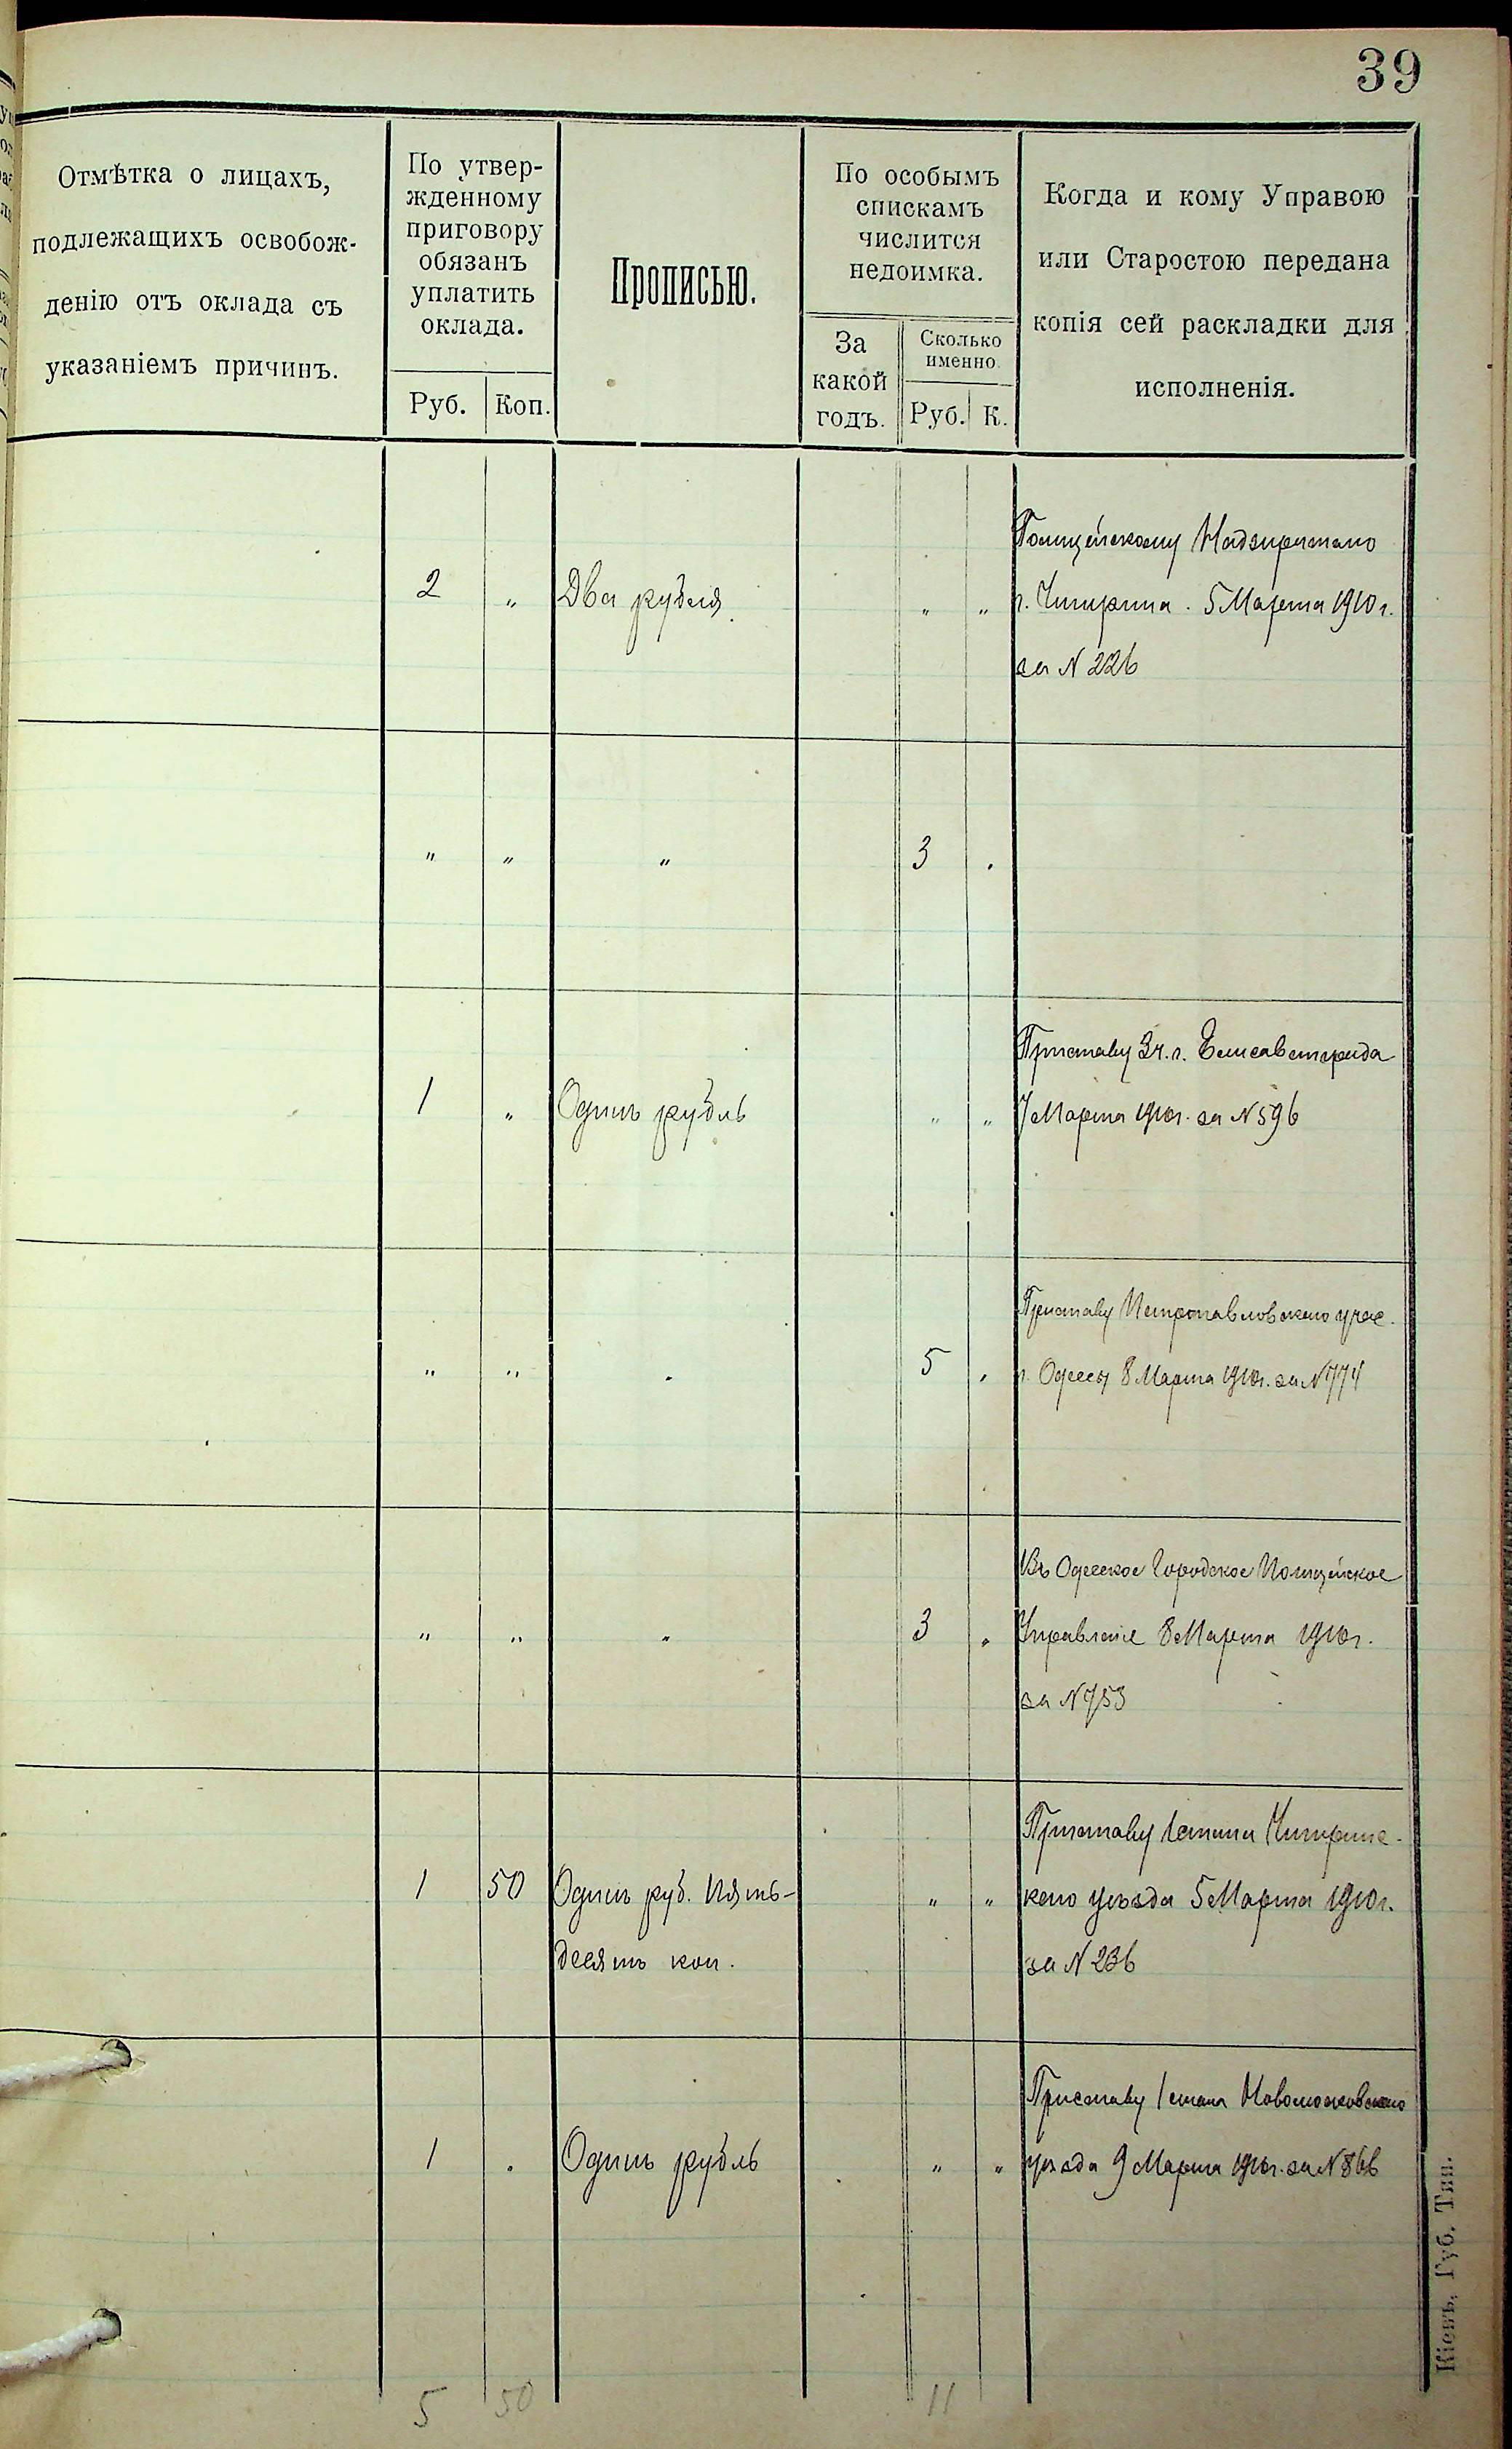 39
Отмѣтка о лицахъ,
подлежащихъ освобож-
денію отъ оклада съ
указаніемъ причинъ.
По утвер-
жденному
приговору
обязанъ
уплатить
оклада.
Руб. Коп.
Прописью.
По особымъ
спискамъ
числится
недоимка.
За
какой
годъ.
Сколько
именно
Руб. К.
Когда и кому Управою
или Старостою передана
копія сей раскладки для
исполненія.
Полицейскому Надзирателю
2 „ Два рубля. „ „ г. Чигирина. 5 Марта 1910 г.
за N 226
„ „ „ 3 .
Приставу 3 ч. г. Елисаветграда
1 „ Одинъ рубль „ „ 7 Марта 1910 г. за N 596
Приставу Петропавловскаго учас.
„ „ . 5 . г. Одессы 8 Марта 1910 г. за N 774
Въ Одесское Городское Полицейское
„ „ „ 3 „ Управленіе 8 Марта 1910 г.
за N 753
Приставу 1 стана Чигиринс-
1 50 Одинъ руб. пять- „ „ каго уѣзда 5 Марта 1910 г.
десять коп. за N 236
Приставу 1 стана Новомосковскаго
1 . Одинъ рубль „ „ уѣзда 9 Марта 1910 г. за N 866
5 50 11
Кіевъ, Губ. Тип.